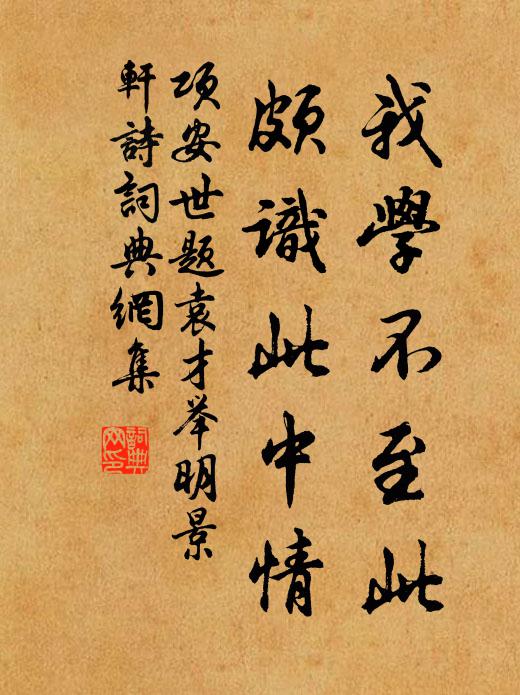 我學不至此
頗識此中情
項安世題袁才举明景
軒詩詞典網集
詞典
网印